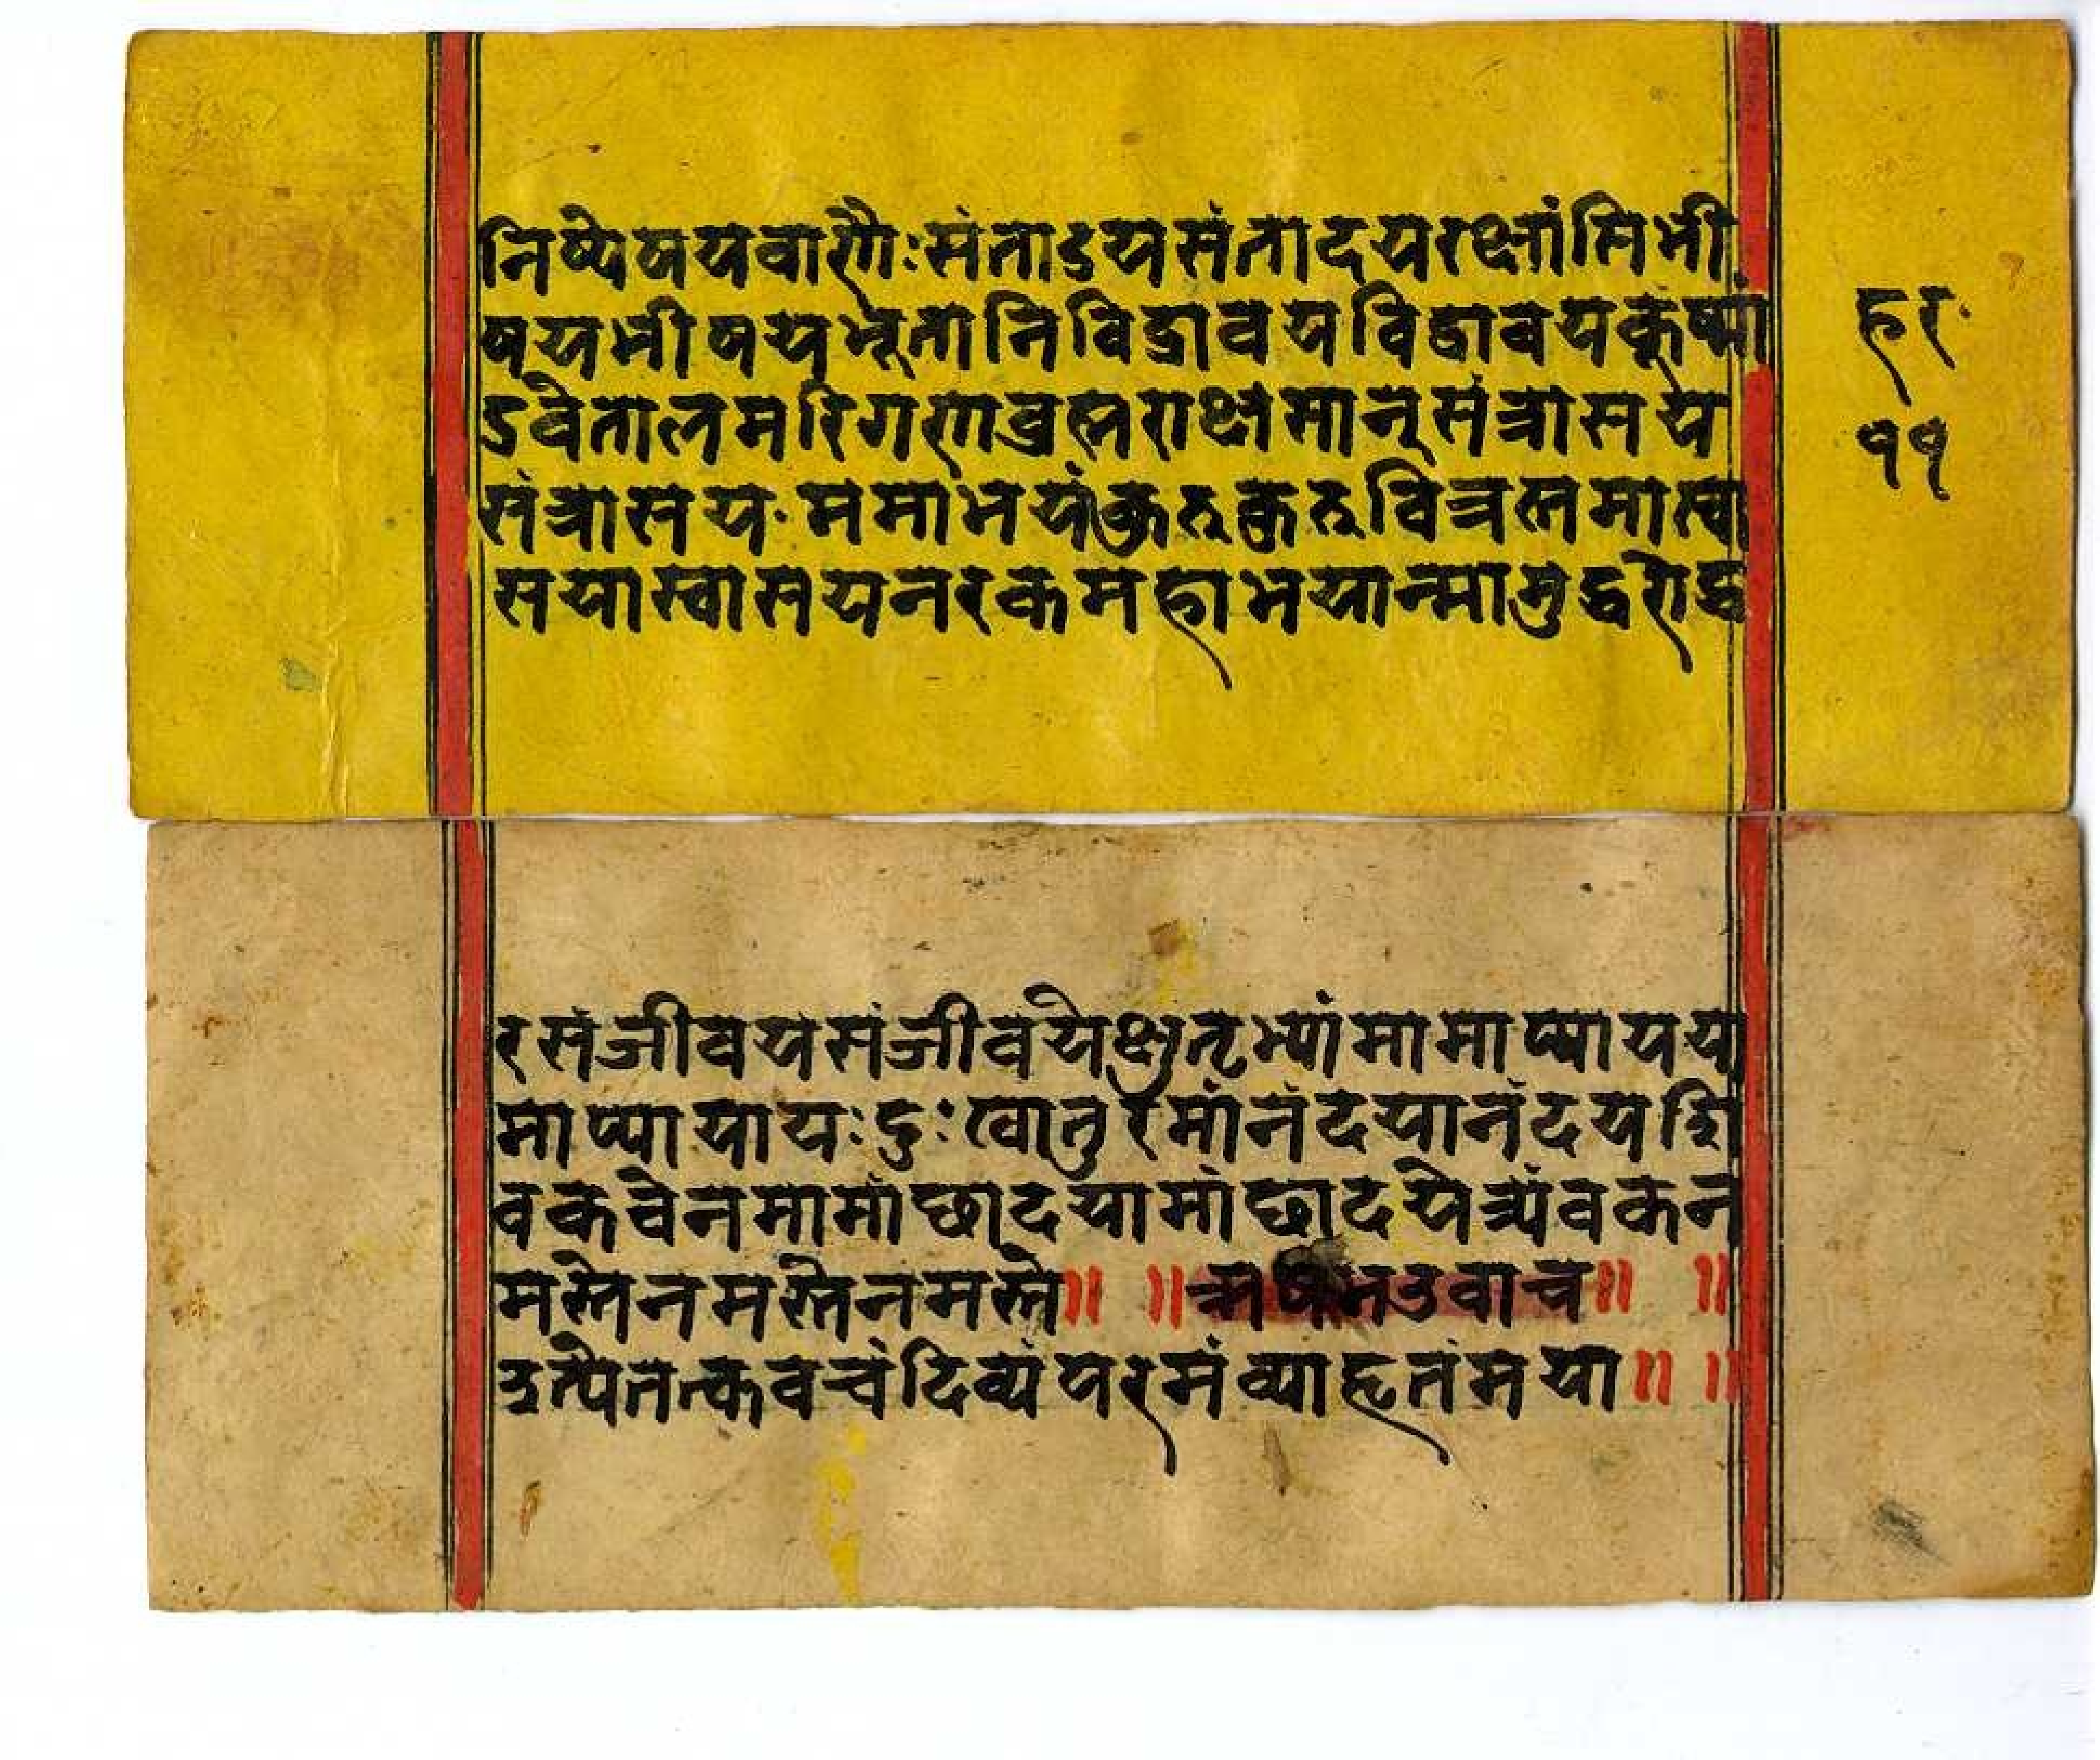 निष्पेषयवाणैःसंताडयसंतादयरक्षांसिभी
षयभीषयभूतानिविद्रावयविद्रावयकूष्मां
डवेतालमरिगणब्रह्मराक्षसान्संत्रासय
संत्रासयममाभयंकुरुकुरुवित्रस्तमास्वा
सयास्वासयनरकमहाभयान्मामुद्धरोद्ध
हर
११
रसंजीवयसंजीवयक्षुतृभ्यांमामाप्यायया
माप्यायायःदुःखातुरमांनंदयानंदयशि
वकवेनमामांछादयामांछादयेत्र्यंवकन
मस्तेनमस्तेनमस्ते॥ ॥ऋषभउवाच॥ ॥
इत्येतत्कवचंदिव्यंपरमंव्याहृतंमया॥ ॥